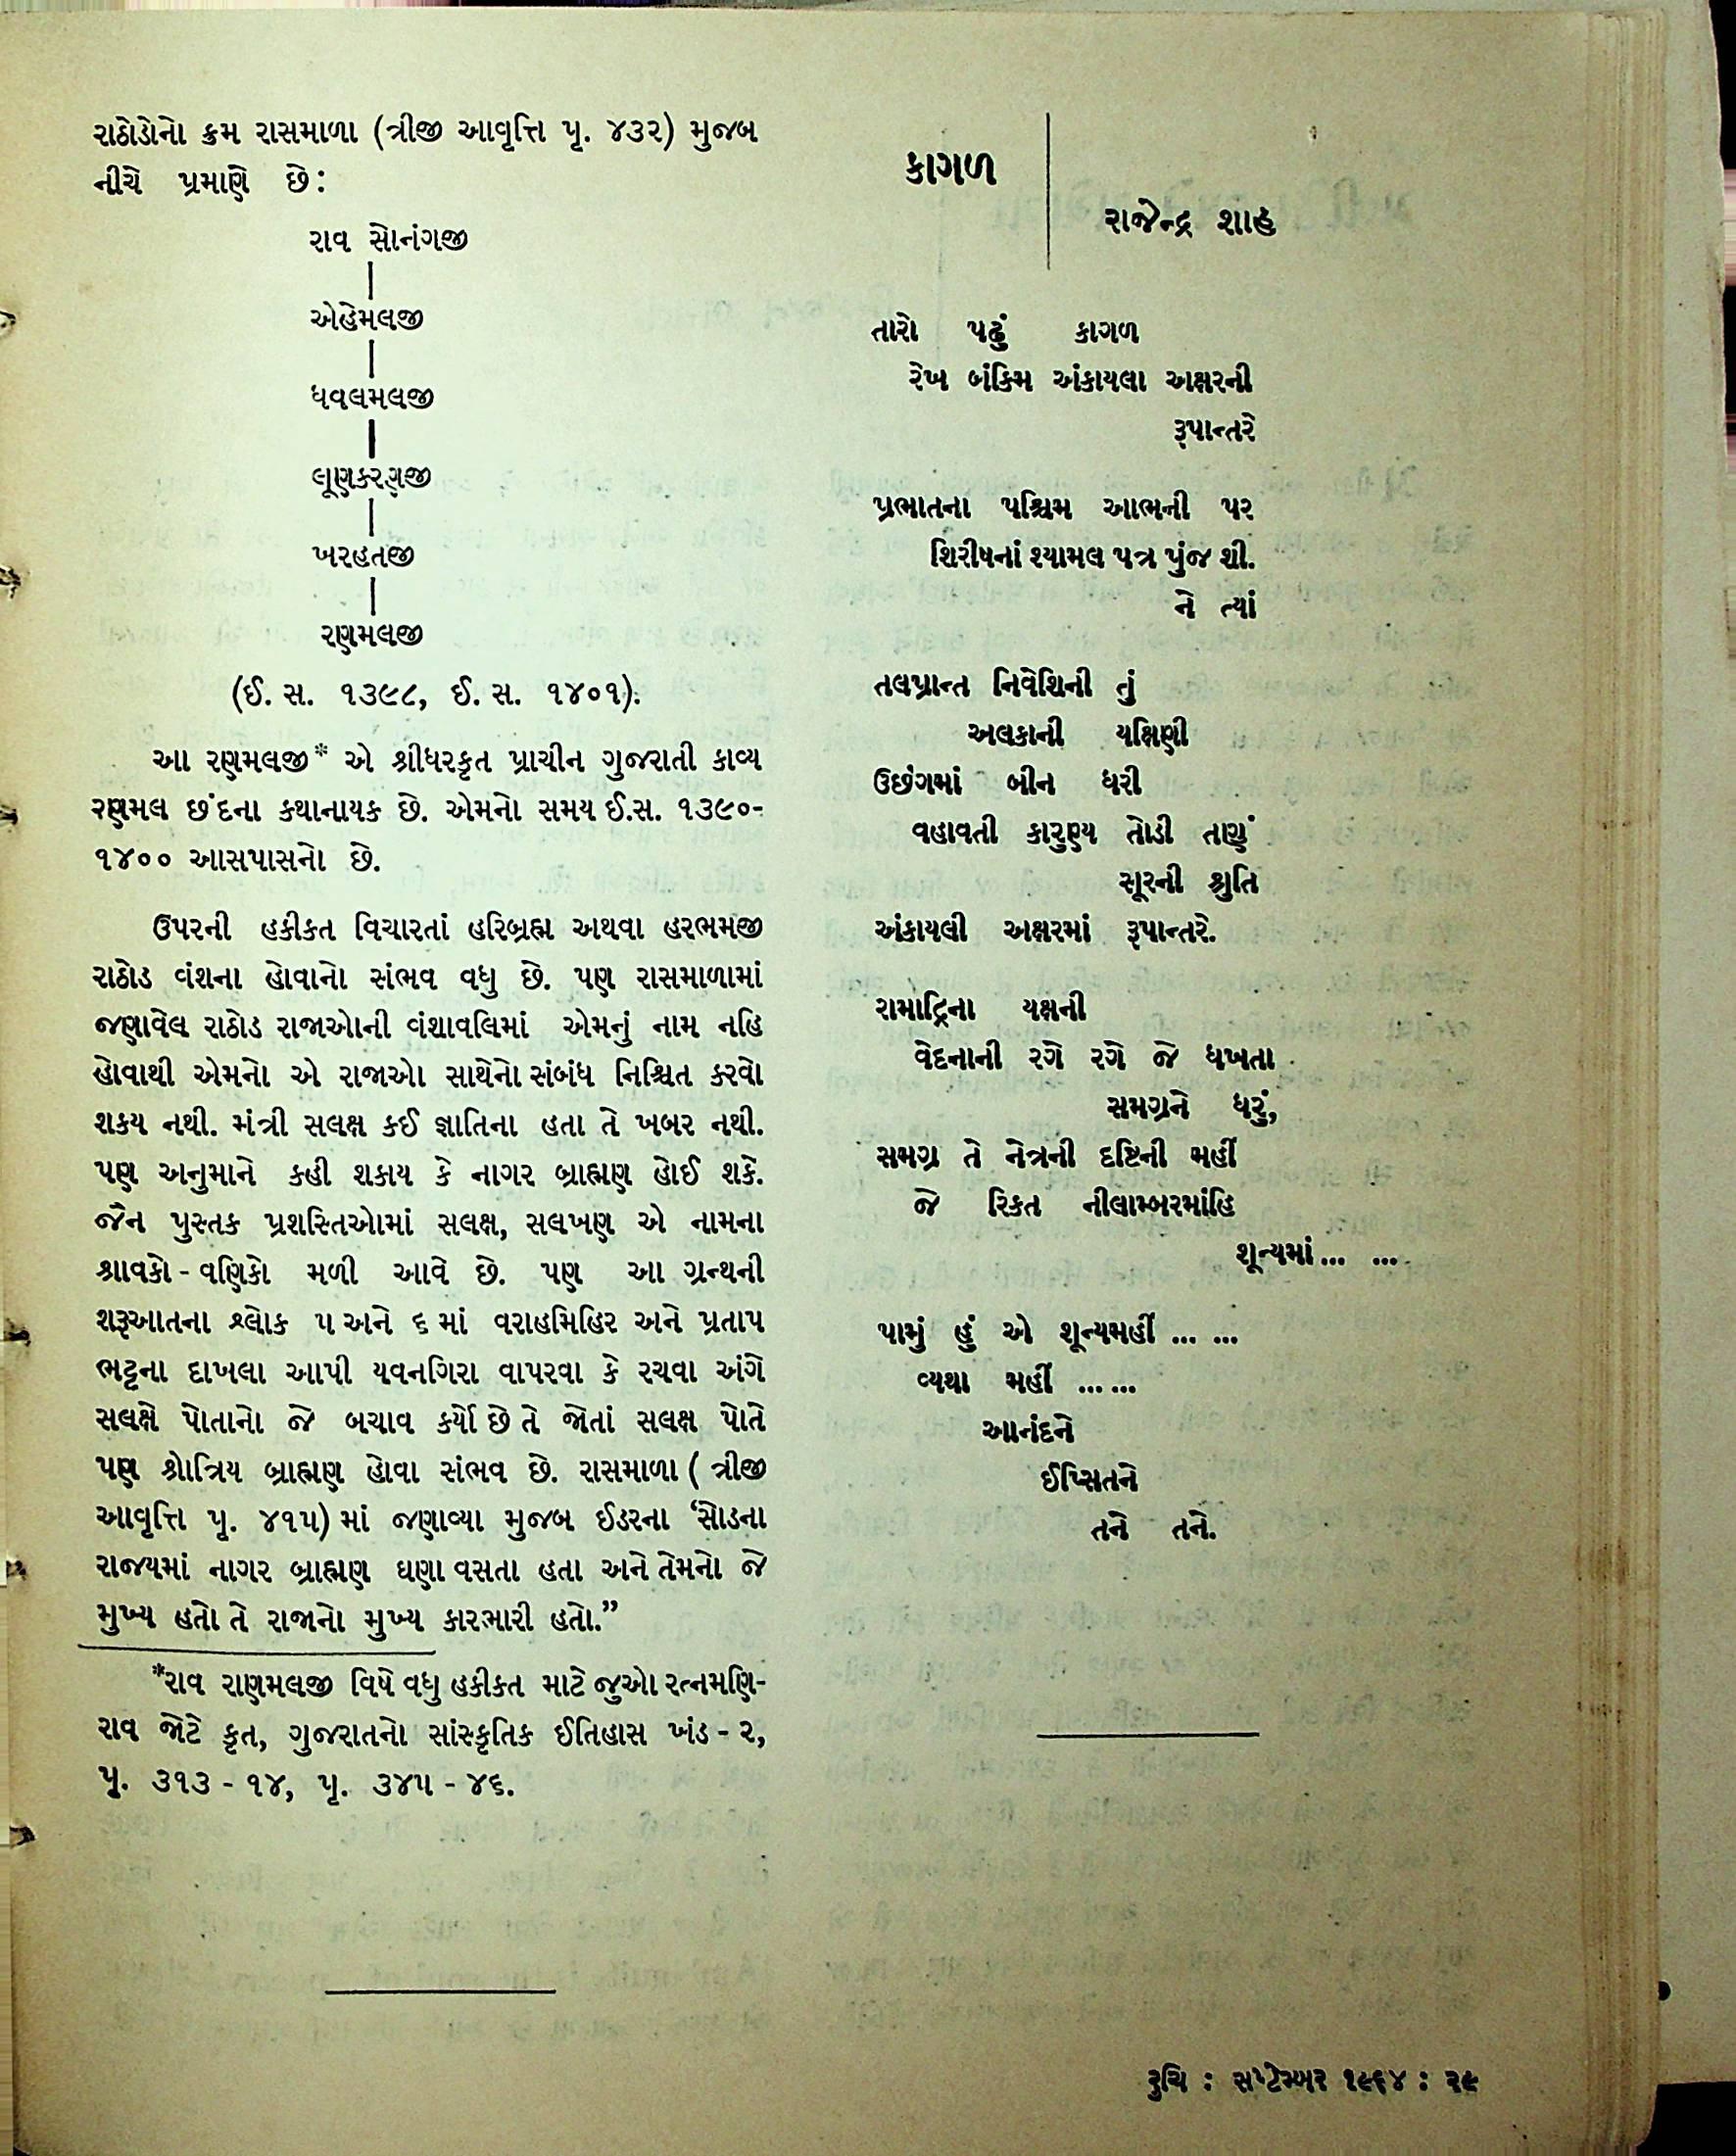 રાઠોડોનો ક્રમ રાસમાળા (ત્રીજી આવૃત્તિ પૃ. ૪૩૨) મુજબ
નીચે પ્રમાણે છે:
રાવ સોનંગજી
એહેમલજી
ધવલમલજી
લૂણકરણજી
ખરહતજી
રણમલજી
(ઈ. સ. ૧૩૯૮, ઈ. સ. ૧૪૦૧).
આ રણમલજી* એ શ્રીધરકૃત પ્રાચીન ગુજરાતી કાવ્ય
રણમલ છંદના કથાનાયક છે. એમનો સમય ઈ.સ. ૧૩૯૦-
૧૪૦૦ આસપાસનો છે.
ઉપરની હકીકત વિચારતાં હરિબ્રહ્મ અથવા હરભમજી
રાઠોડ વંશના હોવાનો સંભવ વધુ છે. પણ રાસમાળામાં
જણાવેલ રાઠોડ રાજાઓની વંશાવલિમાં એમનું નામ નહિ
હોવાથી એમનો એ રાજાઓ સાથેનો સંબંધ નિશ્ચિત કરવો
શકય નથી. મંત્રી સલક્ષ કઈ જ્ઞાતિના હતા તે ખબર નથી.
પણ અનુમાને કહી શકાય કે નાગર બ્રાહ્મણ હોઈ શકે.
જૈન પુસ્તક પ્રશસ્તિઓમાં સલક્ષ, સલખણ એ નામના
શ્રાવકો - વણિકો મળી આવે છે. પણ આ ગ્રન્થની
શરૂઆતના શ્લોક ૫ અને ૬ માં વરાહમિહિર અને પ્રતાપ
ભટ્ટના દાખલા આપી યવનગિરા વાપરવા કે રચવા અંગે
સલક્ષે પોતાનો જે બચાવ કર્યો છે તે જોતાં સલક્ષ પોતે
પણ શ્રોત્રિય બ્રાહ્મણ હોવા સંભવ છે. રાસમાળા ( ત્રીજી
આવૃત્તિ પૃ. ૪૧૫) માં જણાવ્યા મુજબ ઈડરના ‘સોડના
રાજયમાં નાગર બ્રાહ્મણ ઘણા વસતા હતા અને તેમનો જે
મુખ્ય હતો તે રાજાનો મુખ્ય કારભારી હતો.”
*રાવ રાણમલજી વિષે વધુ હકીકત માટે જુઓ રત્નમણિ-
રાવ જોટે કૃત, ગુજરાતનો સાંસ્કૃતિક ઈતિહાસ ખંડ - ૨,
પૃ. ૩૧૩ - ૧૪, પૃ. ૩૪૫ - ૪૬.
કાગળ
રાજેન્દ્ર શાહ
તારો પઢું કાગળ
રેખ બંકિમ અંકાયલા અક્ષરની
રૂપાન્તરે
પ્રભાતના પશ્ચિમ આભની પર
શિરીષનાં શ્યામલ પત્ર પુંજ શી.
ને ત્યાં
તલપ્રાન્ત નિવેશિની તું
અલકાની યક્ષિણી
ઉછંગમાં બીન ધરી
વહાવતી કારુણ્ય તોડી તણું
સૂરની શ્રુતિ
અંકાયલી અક્ષરમાં રૂપાન્તરે.
રામાદ્રિના યક્ષની
વેદનાની રગે રગે જે ધખતા
સમગ્રને ધરું,
સમગ્ર તે નેત્રની દૃષ્ટિની મહીં
જે રિકત નીલામ્બરમાંહિ
શૂન્યમાં... ...
પામું હું એ શૂન્યમહીં ... ...
વ્યથા મહીં ... ...
આનંદને
ઈપ્સિતને
તને તને.
રુચિ : સપ્ટેમ્બર ૧૯૬૪ : ૨૯